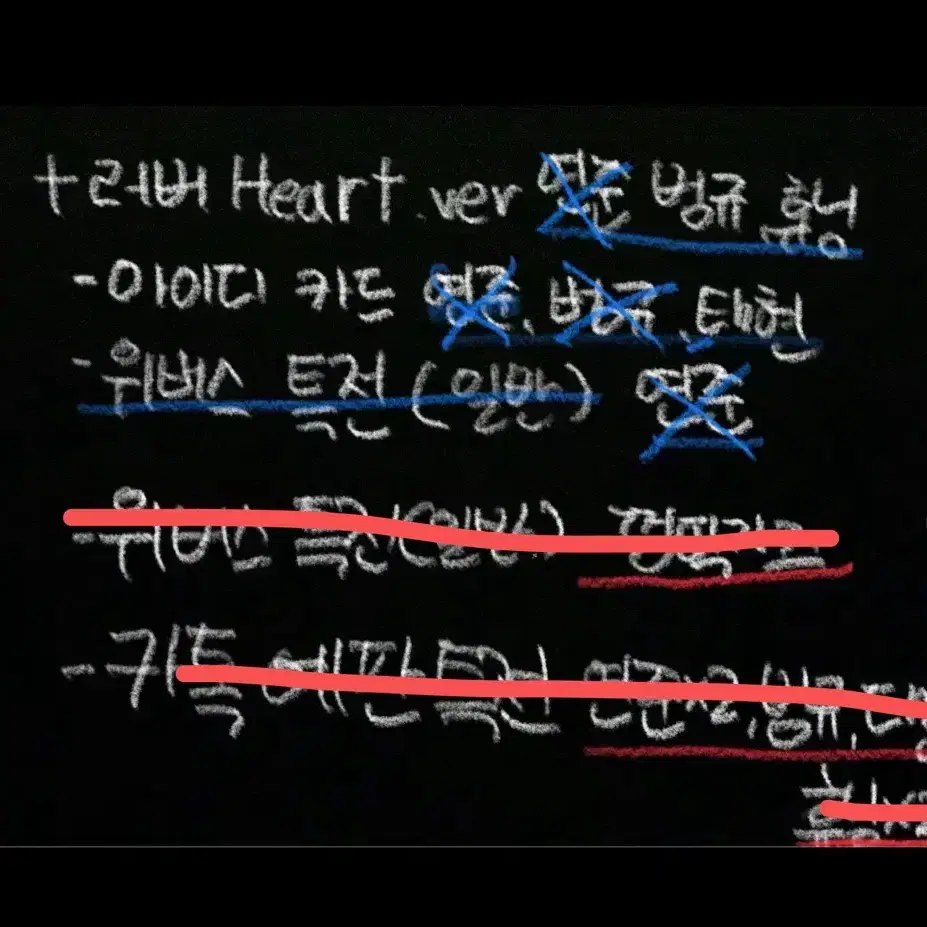 + 러버 Heart.ver 연준 범규 휴닝
- 아이디 카드 연준, 범규, 태현
- 위버스 특전 (일반) 연준
- 위버스 특전(일반)
- 키특 예판 특전 연준x2, 범규,